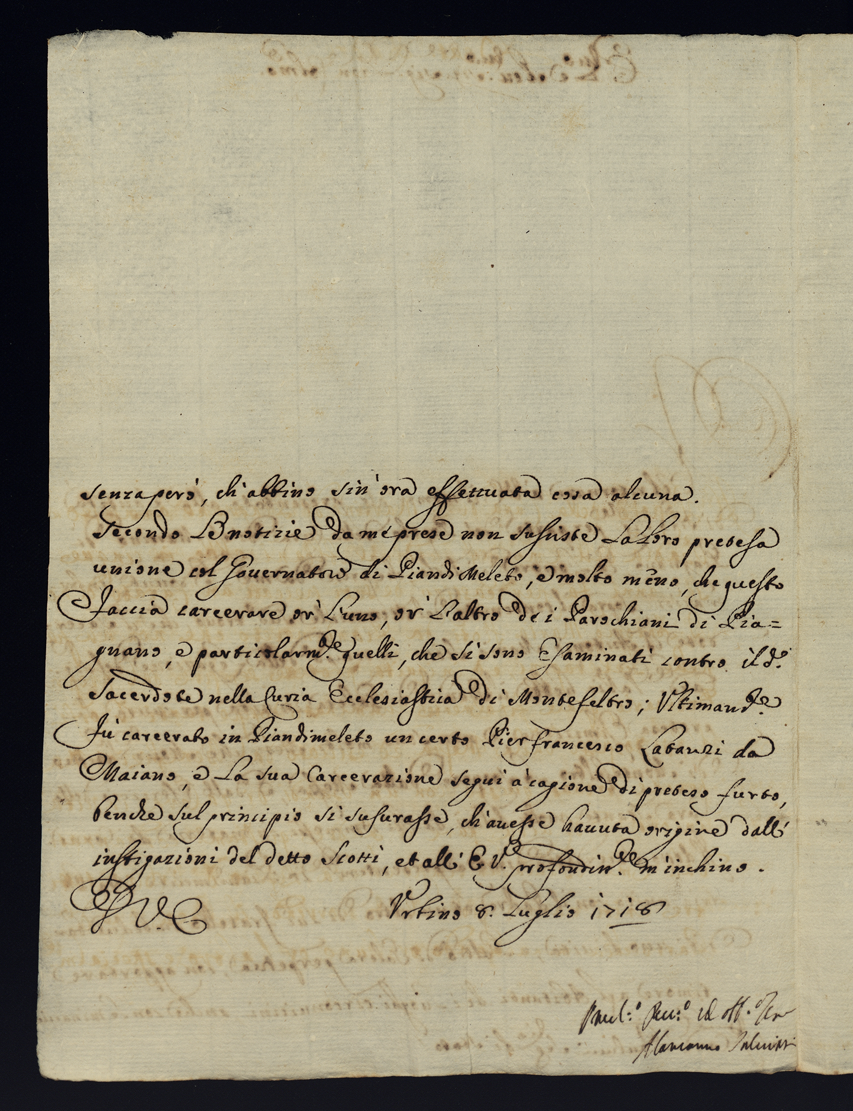 senza però, ch'abbino sin'ora effettuata cosa alcuna.
Secondo le notizie da me prese non sussiste la loro pretesa
unione col Governatore di Piandimeleto, e molto meno, che questo
faccia carcerare or' l'uno, or' l'altro de i Parochiani di Pia=
gnano, e particolarm.te quelli, che si sono esaminati contro il d.o
Sacerdote nella Curia Ecclesiastica di Montefeltro; Ultimam.te
fù carcerato in Piandimeleto un certo Pier francesco da
Maiano, e la sua Carcerazione seguì a' cagione di preteso furto,
benche sul principio si susurasse, ch'avesse havuta origine dall'
instigazioni del detto Scotti, et all' E. V. profondam.te m'inchino.
Urbino 8. Luglio 1718